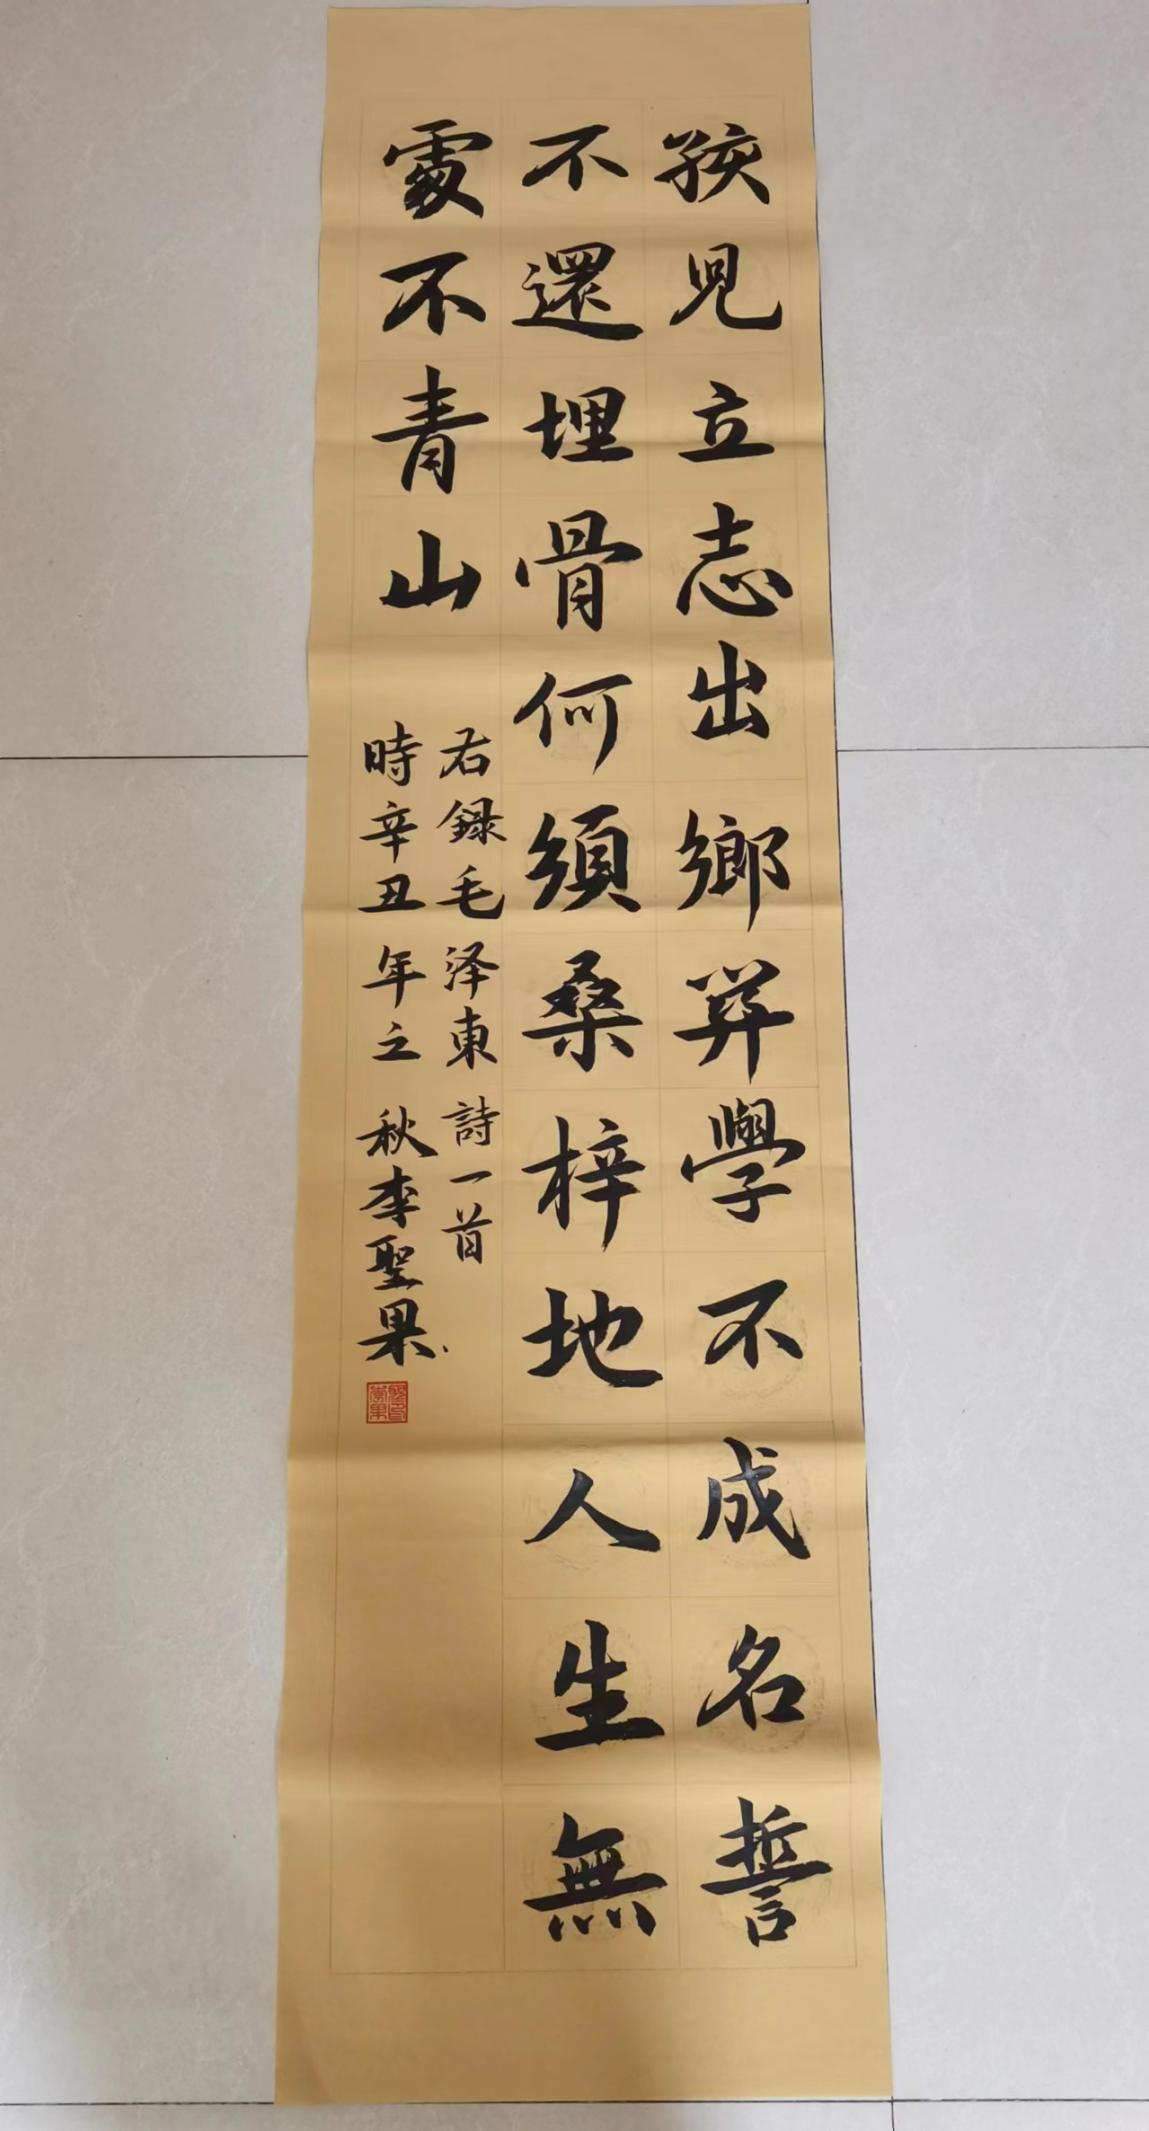 孩兒立志出鄉關學不成名誓
不還埋骨何須桑梓地人生無
處不青山
右録毛泽東詩一首
時辛丑年之秋李聖果